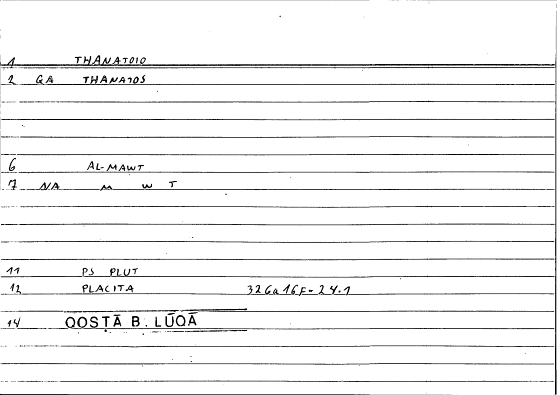 1 THANATOIO
2 GA THANATOS
6 AL-MAWT
7 NA M W T
11 PS PLUT
12 PLACITA 326a16F-24.1
14 QOSṬĀ B. LŪQĀ